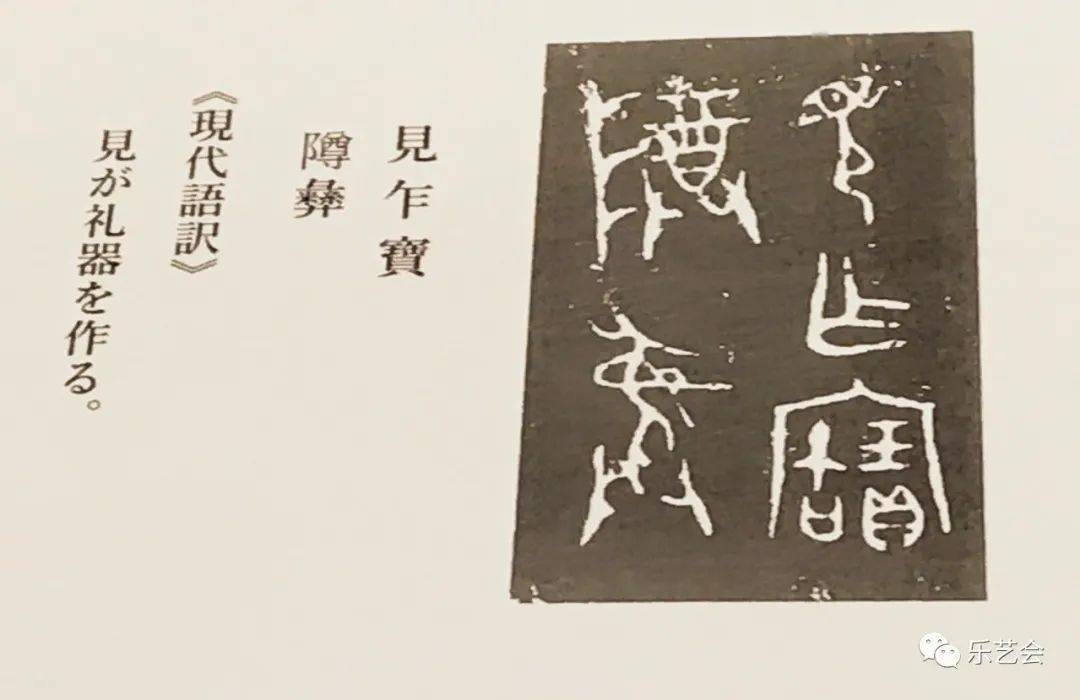 見乍寶
隣彝
《現代語訳》
見が礼器を作る。
乐艺会